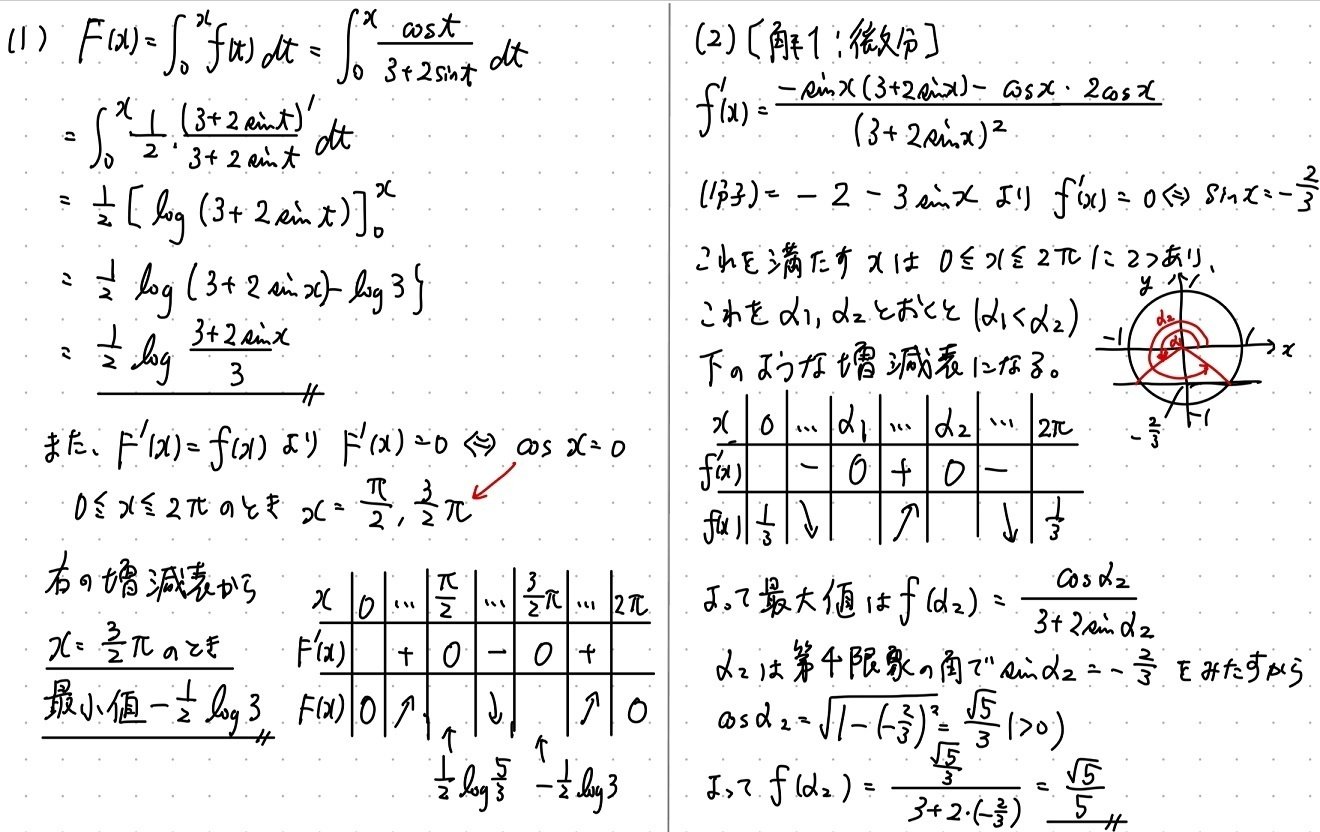 (1) F(x) = ∫₀ˣ f(t) dt = ∫₀ˣ cos t / (3+2sin t) dt
= ∫₀ˣ 1/2 · (3+2sin t)′ / (3+2sin t) dt
= 1/2 [ log (3+2sin t) ]₀ˣ
= 1/2 log (3+2sin x) - log 3 }
= 1/2 log (3+2sin x)/3
また、F′(x) = f(x) より F′(x) = 0 ⇔ cos x = 0
0 ≦ x ≦ 2π のとき x = π/2, 3/2 π
右の増減表から
x = 3/2 π のとき
最小値 - 1/2 log 3
x | 0 | … | π/2 | … | 3/2 π | … | 2π
F′(x) | | + | 0 | - | 0 | + |
F(x) | 0 | ↗ | | ↓ | | ↗ | 0
↑ ↑
1/2 log 5/3 - 1/2 log 3
(2) [解1:微分]
f′(x) = (-sin x (3+2sin x) - cos x · 2cos x) / (3+2sin x)²
(分子) = - 2 - 3 sin x より f′(x) = 0 ⇔ sin x = - 2/3
これを満たす x は 0 ≦ x ≦ 2π に2つあり、
これを α₁, α₂ とおくと (α₁ < α₂)
下のような増減表になる。
y 1
α₂
α₁
-1 1 x
- 2/3 -1
x | 0 | … | α₁ | … | α₂ | … | 2π
f′(x) | | - | 0 | + | 0 | - |
f(x) | 1/3 | ↘ | | ↗ | | ↓ | 1/3
よって最大値は f(α₂) = cos α₂ / (3+2sin α₂)
α₂ は第4限象の角で sin α₂ = - 2/3 をみたすから
cos α₂ = √(1-(-2/3)²) = √5/3 (>0)
よって f(α₂) = (√5/3) / (3+2·(-2/3)) = √5/5